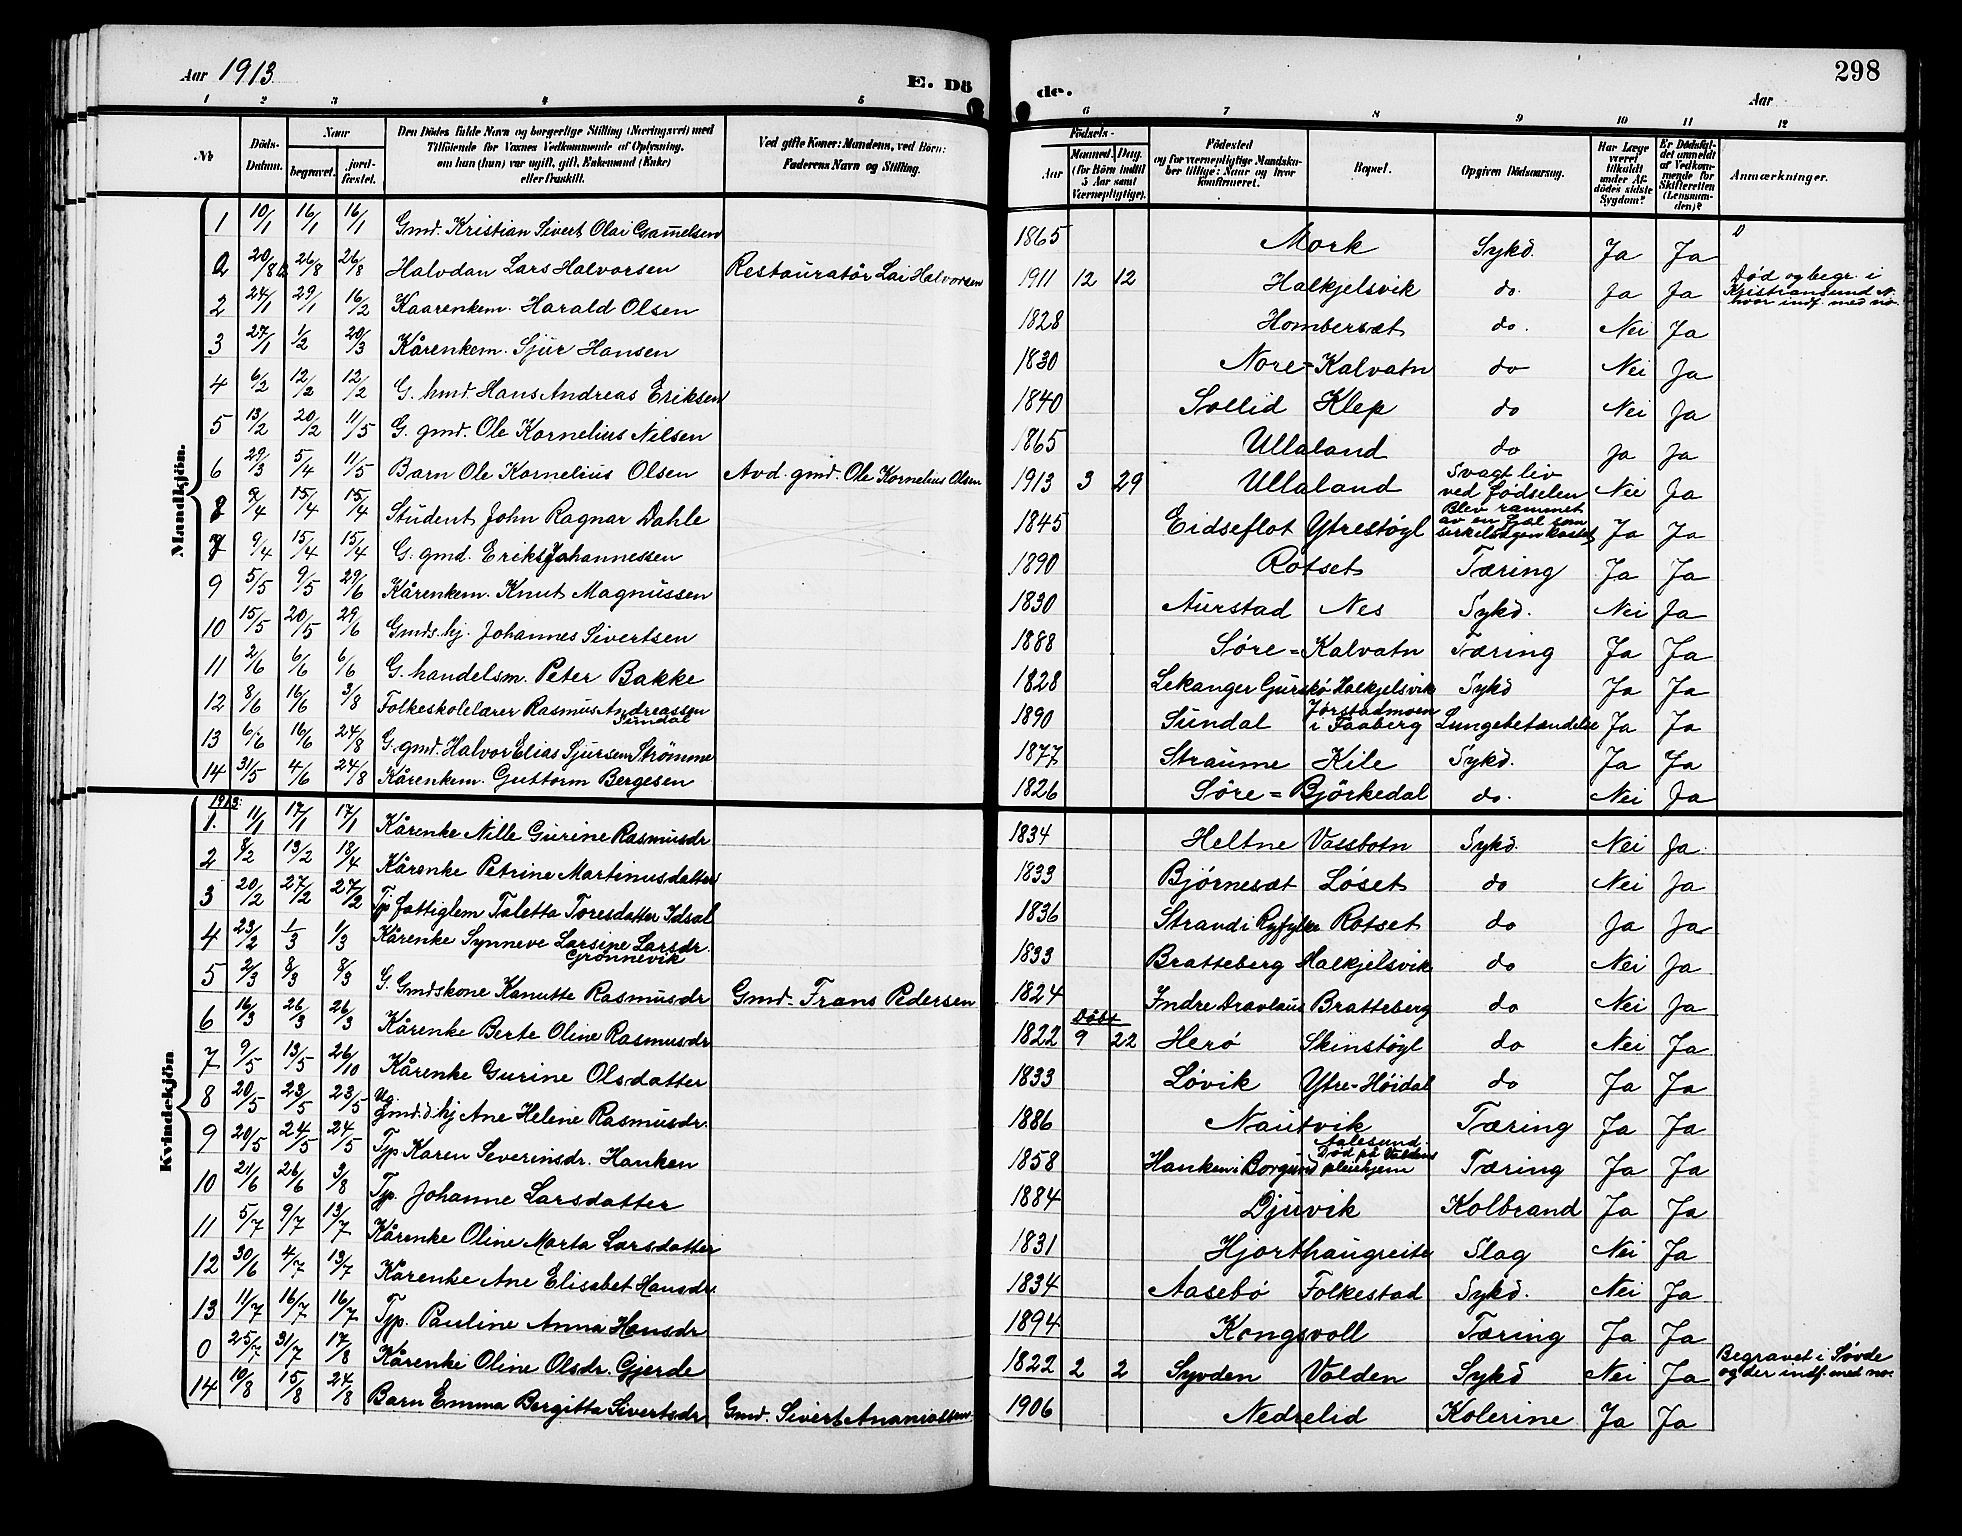 Aar 1913
E. Dö
de.
298
Aar
1 2 3 4 5 6 7 8 9 10 11 12
№
Döds-Datum.
Naar
begravet.
jordfæstet.
Den Dödes fulde Navn og borgerlige Stilling (Næringsvei) med
Tilföiende for Voxnes Vedkommende af Oplysning,
om han (hun) var ugift, gift, Enkemand (Enke)
eller fraskilt.
Ved gifte Koner: Mandens, ved Börn:
Faderens Navn og Stilling.
Födsels-
Aar
Maaned. Dag.
(for Börn indtil
5 Aar samt
Værnepligtige).
Födested
og for værnepligtige Mandska-
ber tillige: Naar og hvor
konfirmeret.
Bopæl.
Opgiven Dödsaarsag.
Har Læge
været
tilkaldt
under Af-
dödes sidste
Sygdom?
Er Dödsfal-
det anmeldt
af Vedkom-
mende for
Skifteretten
(Lensman-
den)?
Anmærkninger.
Mandkjön.
1 10/1 16/1 16/1 Gmd. Kristian Sivert Olai Gamelsen 1865 Mork Sykd. Ja Ja
0 20/8 26/8 26/8 Halvdan Lars Halvorsen Restauratör Lai Halvorsen 1911 12 12 Halkjelsvik do. Ja Ja Död og begr. i Kristiansund N. hvor indf. med no.
2 24/1 29/1 16/2 Kaarenkem. Harald Olsen 1828 Hombersæt do. Nei Ja
3 27/1 1/2 20/3 Kårenkem. Sjur Hansen 1830 Nore-Kalvatn do Nei Ja
4 6/2 12/2 12/2 G. hmd. Hans Andreas Eriksen 1840 Sollid Klep do Nei Ja
5 13/2 20/2 11/5 G. gmd. Ole Kornelius Nilsen 1865 Ullaland do Ja Ja
6 29/3 5/4 11/5 Barn Ole Kornelius Olsen Avd. gmd. Ole Kornelius Olsen 1913 3 29 Ullaland Svagt liv ved födselen Nei Ja
8 9/4 15/4 15/4 Student John Ragnar Dahle 1845 Eidseflot Ytrestøyl Blev rammet av en fjøl som sirkelsagen kastet Ja Ja
7 9/4 15/4 15/4 G. gmd. Erik Johannessen 1890 Rotset Tæring Ja Ja
9 5/5 9/5 29/6 Kårenkem. Knut Magnussen 1830 Aurstad Nes Sykd. Nei Ja
10 15/5 20/5 29/6 Gmds. hj. Johannes Sivertsen 1888 Søre-Kalvatn Tæring Ja Ja
11 2/6 6/6 6/6 G. handelsm. Peter Bakke 1828 Lekanger Gurskö Halkjelsvik Sykd Ja Ja
12 8/6 16/6 3/8 Folkeskolelærer Rasmus Andreassen Sundal 1890 Sundal Jørstadmoen i Faaberg Lungebetændelse Ja Ja
13 6/6 16/6 24/8 G. gmd. Halvor Elias Sjursen Strömme 1877 Straume Kile Sykd. Ja Ja
14 31/5 4/6 24/8 Kårenkem. Guttorm Bergesen 1826 Søre-Björkedal do. Nei Ja
Kvindekjön
1913
1. 11/1 17/1 17/1 Kårenke Nille Gurine Rasmusdr 1834 Heltne Vassbotn Sykd. Nei Ja
2 8/2 13/2 18/4 Kårenke Petrine Martinusdatter 1833 Bjørnesæt Løset do Nei Ja
3 20/2 27/2 27/2 Tjp fattiglem Taletta Toresdatter Idsal 1836 Strand i Ryfylke Rotset do Ja Ja
4 23/2 1/3 1/3 Kårenke Synneve Larsine Larsdr. Grönnevik 1833 Bratteberg Halkjelsvik do Nei Ja
5 2/3 8/3 8/3 G. Gmdskone Kanutte Rasmusdr Gmd. Frans Pedersen 1824 Indre Dravlaus Bratteberg do Nei Ja
6 16/3 26/3 26/3 Kårenke Berte Oline Rasmusdr 1822 Döbt 9 22 Herö Skinstøyl do Nei Ja
7 9/5 13/5 26/10 Kårenke Gurine Olsdatter 1833 Løvik Ytre-Höidal do Ja Ja
8 20/5 23/5 23/5 Ug. gmd.d. hj Ane Helene Rasmusdr. 1886 Nautvik Tæring Ja Ja
9 20/5 24/5 24/5 Tjp Karen Severinsdr. Hanken 1858 Hanken i Borgund Aalesund. Död på Valdens pleiehjem Tæring Ja Ja
10 21/6 26/6 3/8 Tjp. Johanne Larsdatter 1884 Djuvik Kolbrand Ja Ja
11 5/7 9/7 13/7 Kårenke Oline Marta Larsdatter 1831 Hjorthaugreite Slag Nei Ja
12 30/6 4/7 13/7 Kårenke Ane Elisabet Hansdr. 1834 Aasebö Folkestad Sykd. Nei Ja
13 11/7 16/7 16/7 Tjp. Pauline Anna Hansdr 1894 Kongsvoll Tæring Ja Ja
0 25/7 31/7 17/8 Kårenke Oline Olsdr. Gjerde 1822 2 2 Syvden Volden Sykd Nei Ja Begravet i Søvde og der indf. med no.
14 10/8 15/8 24/8 Barn Emma Bergitta Sivertsdr Gmd. Sivert Ananiassen 1906 Nedrelid Kolerine Ja Ja